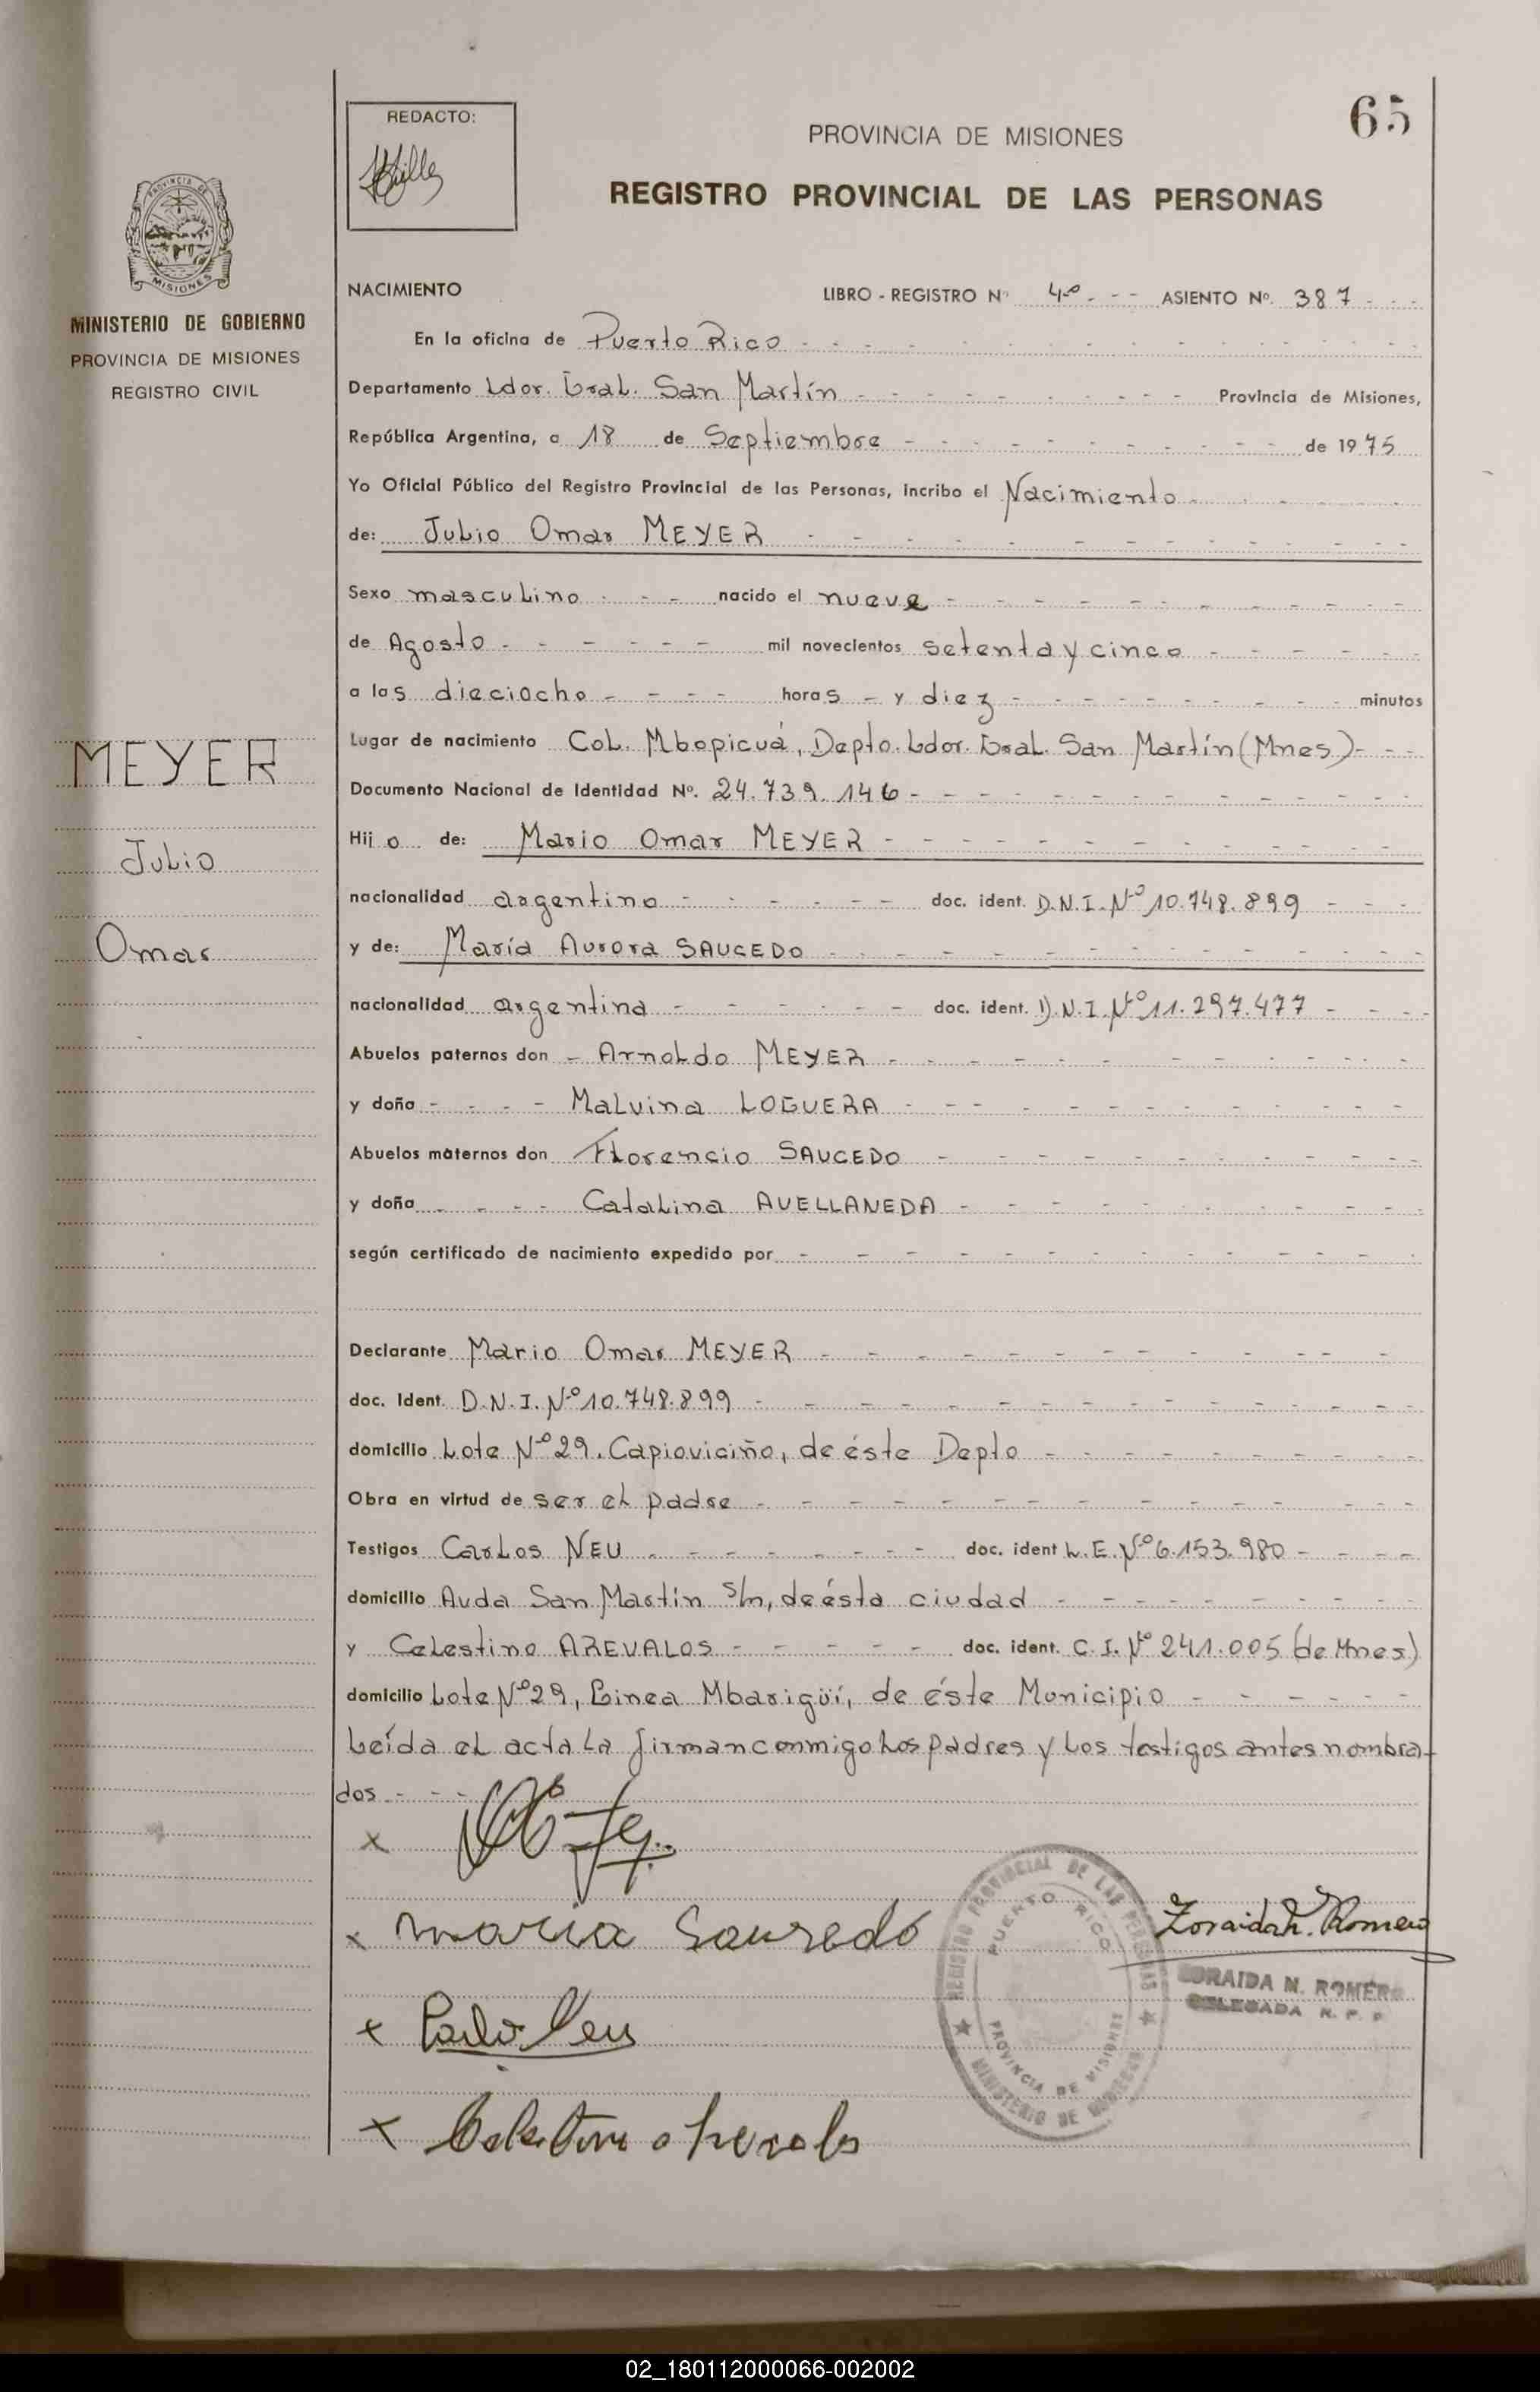 65
REDACTO:
PROVINCIA DE MISIONES
REGISTRO PROVINCIAL DE LAS PERSONAS
MISIONES
MINISTERIO DE GOBIERNO
PROVINCIA DE MISIONES
REGISTRO CIVIL
MEYER
Julio
Omar
NACIMIENTO LIBRO - REGISTRO Nº 4º - - - ASIENTO Nº. 387 - - -
En la oficina de Puerto Rico
Departamento Ldor. Gral. San Martín Provincia de Misiones,
República Argentina, a 18 de Septiembre de 1975
Yo Oficial Público del Registro Provincial de las Personas, incribo el Nacimiento
de: Julio Omar MEYER
Sexo masculino nacido el nueve
de Agosto mil novecientos setenta y cinco
a las dieciocho horas - y diez minutos
Lugar de nacimiento Col. Mbopicuá, Depto. Ldor. Gral. San Martín (Mnes)
Documento Nacional de Identidad Nº. 24.739.146
Hij o de: Mario Omar MEYER
nacionalidad argentino doc. ident. D.N.I. Nº 10.748.899
y de: María Aurora SAUCEDO
nacionalidad argentina doc. ident. D.N.I. Nº 11.297.477
Abuelos paternos don - Arnoldo MEYER
y doña - - - - Malvina LOGUERA
Abuelos maternos don Florencio SAUCEDO
y doña - - - - Catalina AVELLANEDA
según certificado de nacimiento expedido por
Declarante Mario Omar MEYER
doc. ident. D.N.I. Nº 10.748.899
domicilio Lote Nº 29. Capioviciño, de éste Depto
Obra en virtud de ser el padre
Testigos Carlos NEU doc. ident L.E. Nº 6.153.980
domicilio Avda San Martín s/n, de ésta ciudad
y Celestino AREVALOS doc. ident. C.I. Nº 241.005 (de Mnes)
domicilio Lote Nº 29, Linea Mbarigüí, de éste Municipio
Leída el acta la firman conmigo los padres y los testigos antes nombra-
dos - - -
x
x maria Sauredo
x Carlos Neu
x Celestino Arevalos
REGISTRO PROVINCIAL DE LAS PERSONAS
PUERTO RICO
PROVINCIA DE MISIONES
MINISTERIO DE GOBIERNO
Zoraida N. Romero
ZORAIDA N. ROMERO
DELEGADA R. P. P.
02_180112000066-002002